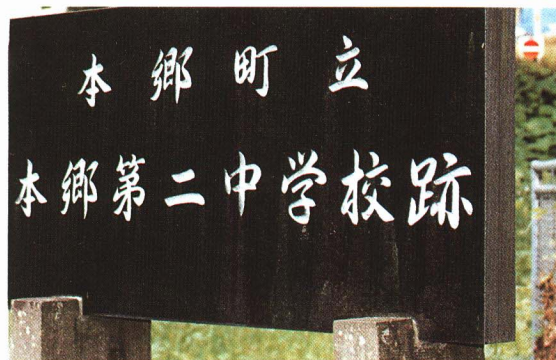 本郷町立
本郷第二中学校跡